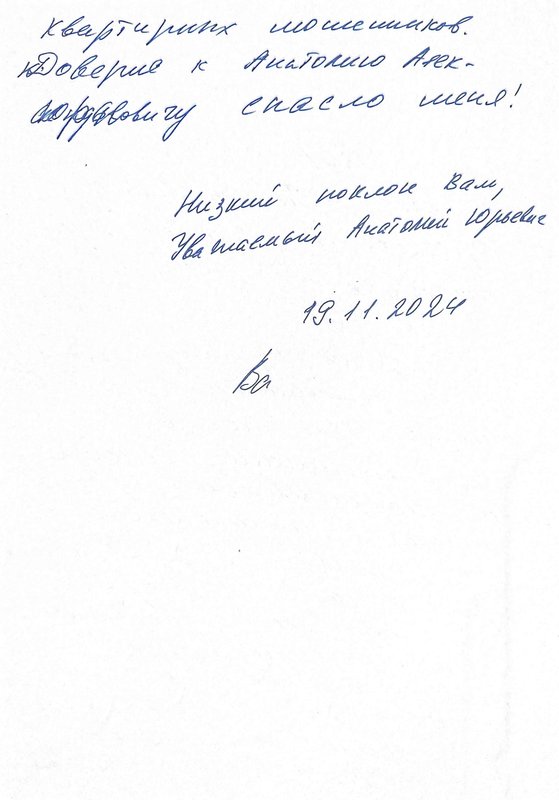 квартирных мошенников.
Доверие к Анатолию Алек-
сандровичу спасло меня!
Низкий поклон Вам,
Уважаемый Анатолий Юрьевич
19.11.2024
Ва